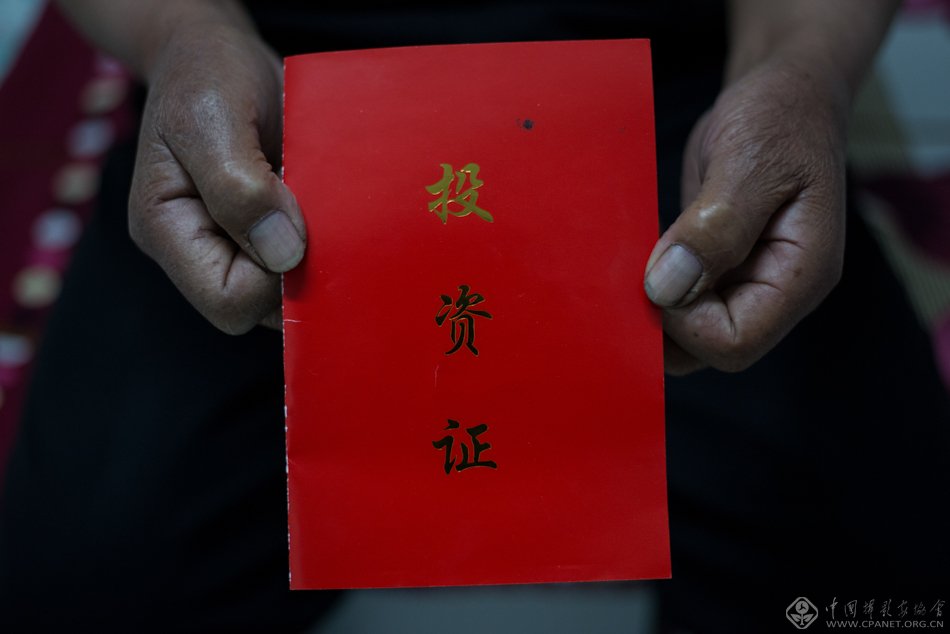 投
资
证
中国摄影家协会
WWW.CPANET.ORG.CN